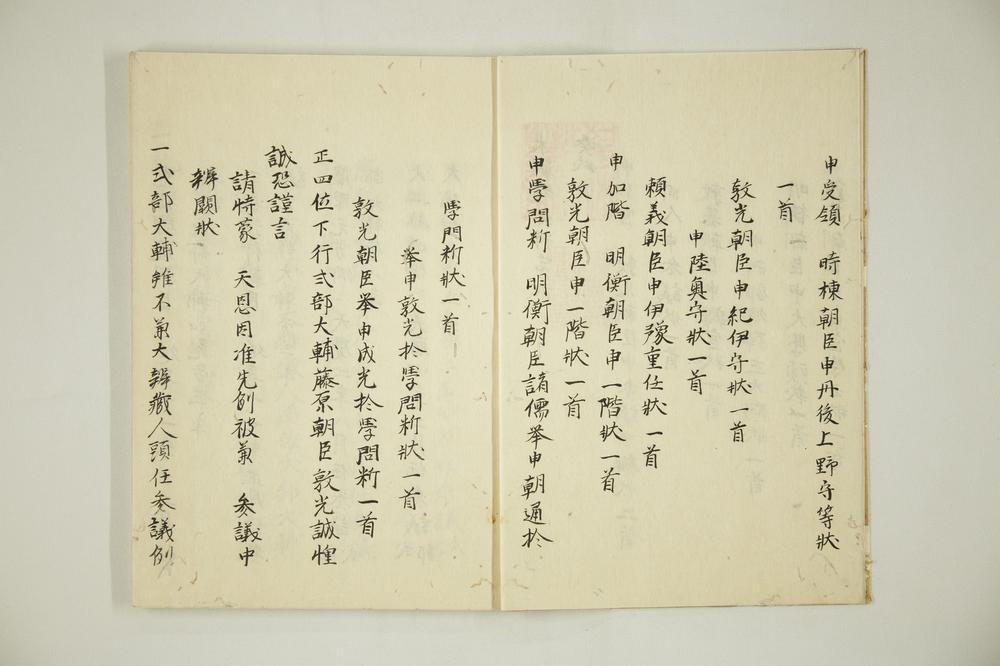 申受領　時棟朝臣申丹後上野守等状
一首
敦光朝臣申紀伊守状一首
申陸奥守状一首
頼義朝臣申伊豫重任状一首
申加階　明衡朝臣申一階状一首
敦光朝臣申一階状一首
申學問料　明衡朝臣諸儒挙申朝通於
學問料状一首
挙申敦光於學問料状一首
敦光朝臣挙申成光於學問料一首
正四位下行式部大輔藤原朝臣敦光誠惶
誠恐謹言
請特蒙　天恩因准先例被兼　参議中
辨闕状
一式部大輔雖不兼大辨蔵人頭任参議例